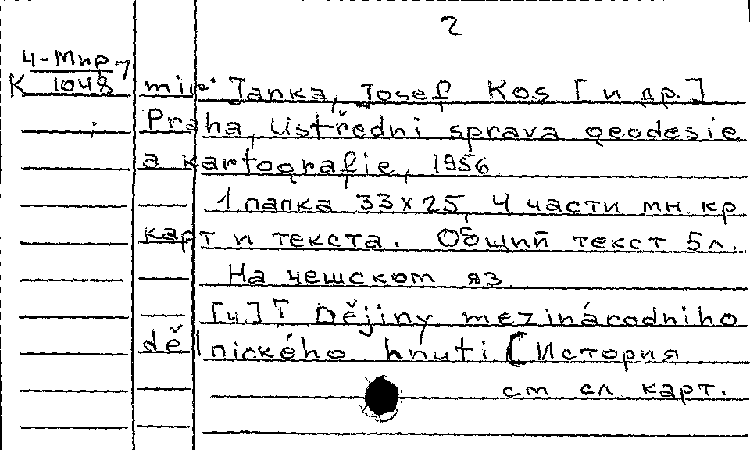 2
4-Мир7
К 1048
mír Janka, Josef Kos [и др.]
Praha, Ústřední správa geodesie
a kartografie, 1956
1 папка 33х25, 4 части мн. кр.
карт и текста. Общий текст 5 л.
На чешском яз.
[ч.] I Dějiny mezinárodního
dělnického hnutí [История
см. сл. карт.